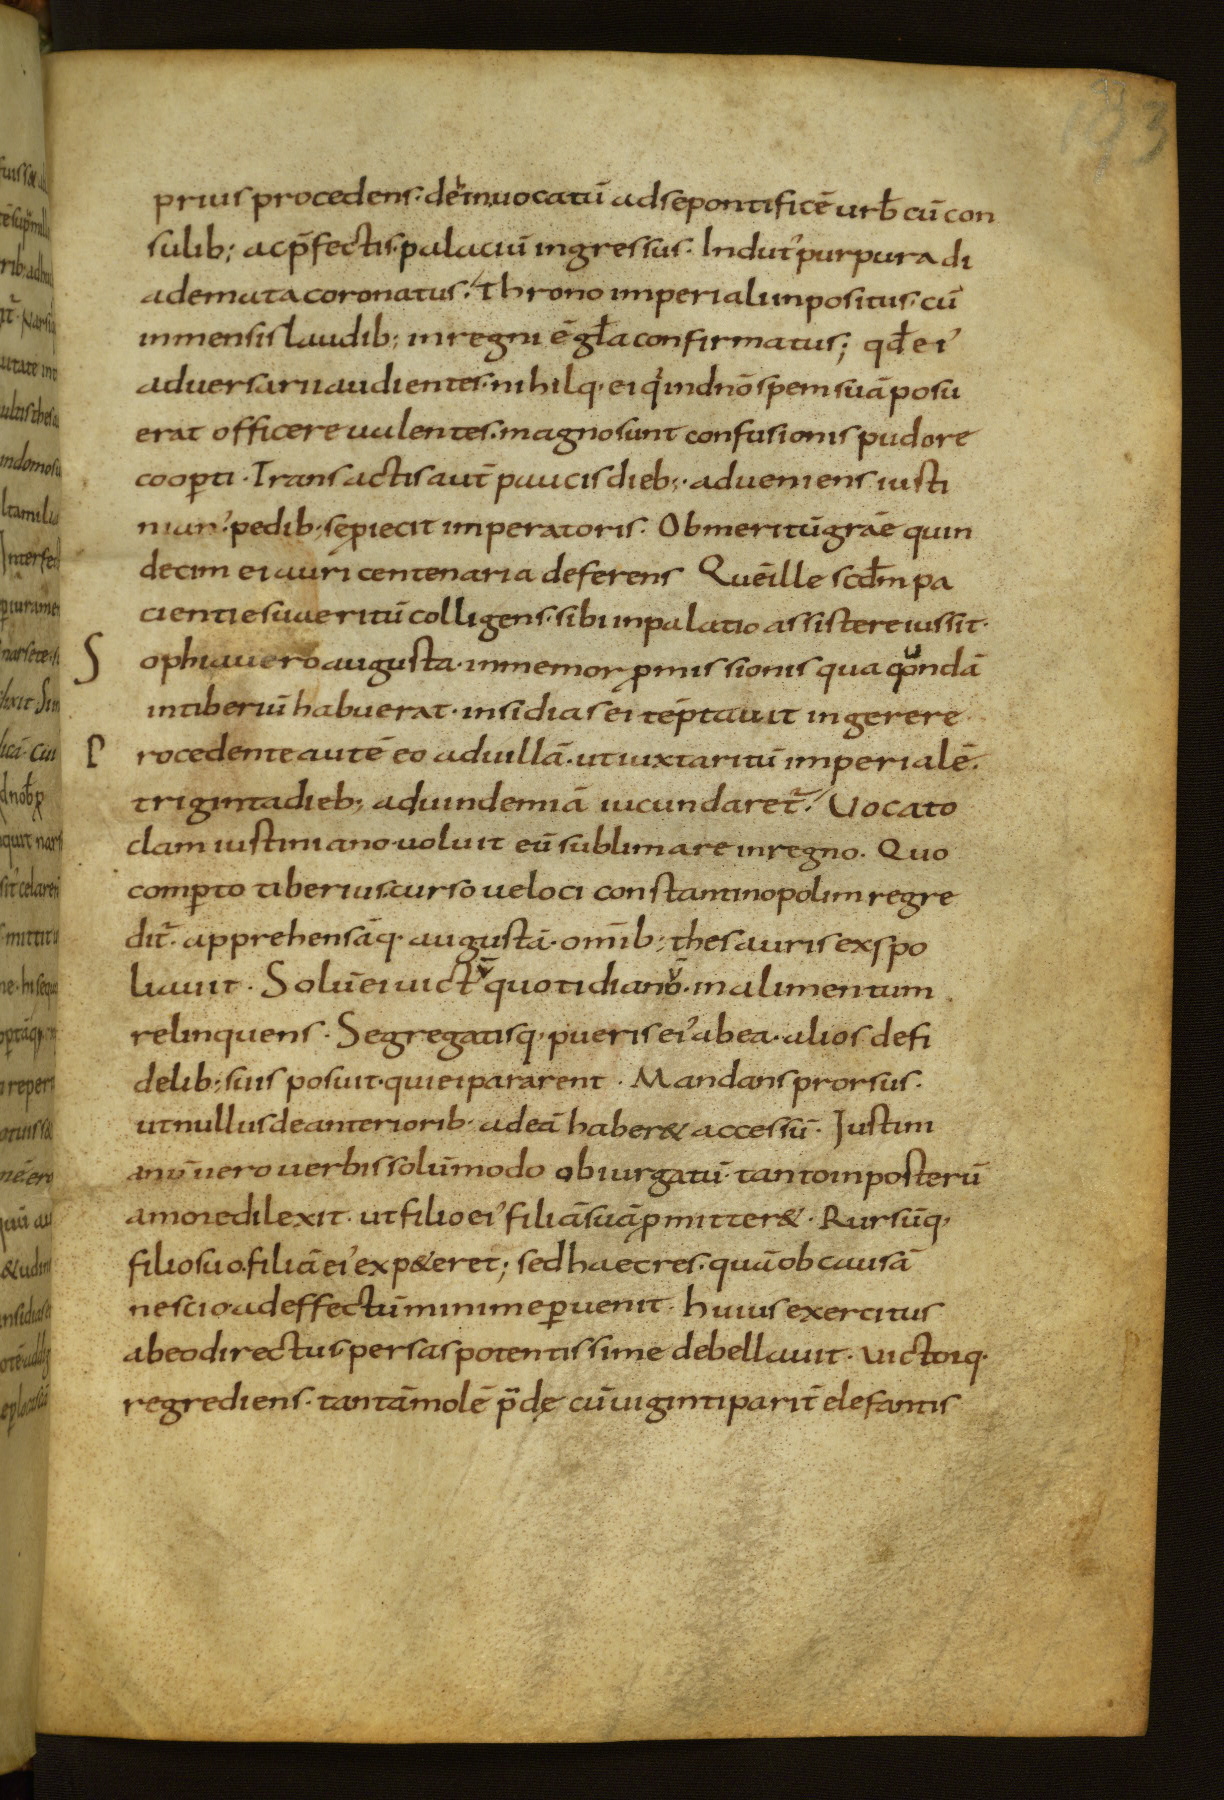 prius procedens· de͛in uocatū ad se pontificē urƀ cū con
sulib; ac p̄fectis· palaciū ingressus· Indut᾽ purpura di
ademata coronatus· throno imperiali inpositus· cū
inmensis laudib; in regni ē gl̄a confirmatus; qđ ei᾽
aduersarii audientes· nihilq· ei qͥ in dn̄o spem suā posu
erat officere ualentes· magno sunt confusionis pudore
cooꝑti· Transactis aut̄ paucis dieb;· adueniens iusti
nian᾽ pedib; se ꝓiecit imperatoris· Ob meritū grāe quin
decim ei auri centenaria deferens Quē ille scđm pa
cientie suae ritū colligens· sibi in palatio assistere iussit·
S ophia uero augusta· inmemor ꝓmissionis qua quondā
in tiberiū habuerat· insidias ei tēptauit ingerere·
P rocedente autē eo ad uillā· ut iuxta ritū imperialē·
triginta dieb; ad uindemiā iucundaret᷑· Uocato
clam iustiniano· uoluit eū sublimare in regno· Quo
comꝑto tiberius· curso ueloci constantinopolim regre
dit᷑· apprehensāq· augustā· omīb; thesauris exspo
liauit· Solū ei uictū quotidianū· in alimentum
relinquens· Segregatisq· pueris ei᾽ ab ea· alios de fi
delib; suis posuit· qui ei pararent· Mandans prorsus·
ut nullus de anteriorib· ad eā haber& accessū· Iustini
anū uero uerbis solūmodo obiurgatū· tanto in posterū
amore dilexit· ut filio ei᾽ filiā suā ꝓmitter&· Rursūq·
filio suo· filiā ei᾽ exp&eret; sed haec res· quā ob causā
nescio ad effectū minime ꝑuenit· huius exercitus
ab eo directus· persas potentissime debellauit· uictorq·
regrediens· tantā molē p̄dę cū uiginti parit̄ elefantis